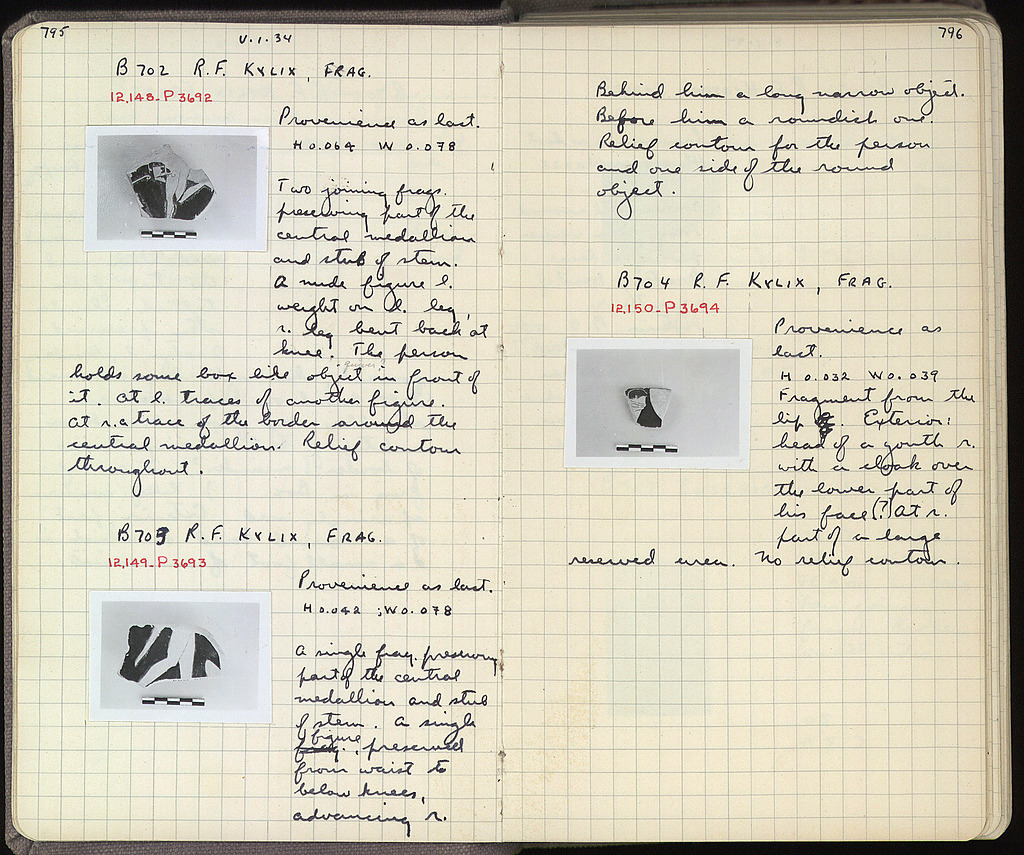 795
V.1.34
B 702 R.F. KYLIX, FRAG.
12,148-P 3692
Provenience as last.
H 0.064 W 0.078
Two joining frags.
preserving part of the
central medallion
and stub of stem.
A nude figure l.
weight on l. leg,
r. leg bent back at
knee. The person
holds some box like object in front of
it. At l. traces of another figure.
At r. a trace of the border around the
central medallion. Relief contour
throughout.
B 703 R.F. KYLIX, FRAG.
12,149-P 3693
Provenience as last.
H 0.042 ; W 0.078
A single frag. preserving
part of the central
medallion and stub
of stem. A single
figure preserved
from waist to
below knees,
advancing r.
796
Behind him a long narrow object.
Before him a roundish one.
Relief contour for the person
and one side of the round
object.
B 704 R.F. KYLIX, FRAG.
12,150-P 3694
Provenience as
last.
H 0.032 W 0.039
Fragment from the
lip. Exterior:
head of a youth r.
with a cloak over
the lower part of
his face(?) At r.
part of a large
reserved area. No relief contour.